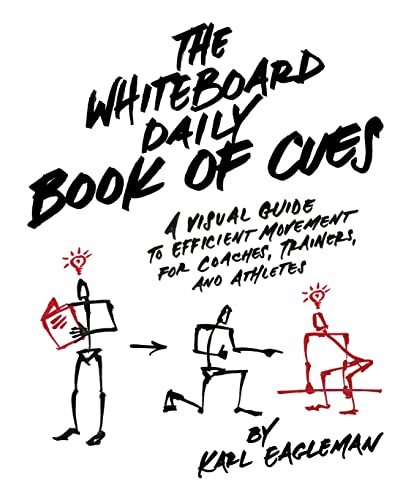 THE
WHITEBOARD
DAILY
BOOK OF CUES
A VISUAL GUIDE
TO EFFICIENT MOVEMENT
FOR COACHES, TRAINERS,
AND ATHLETES
BY
KARL EAGLEMAN